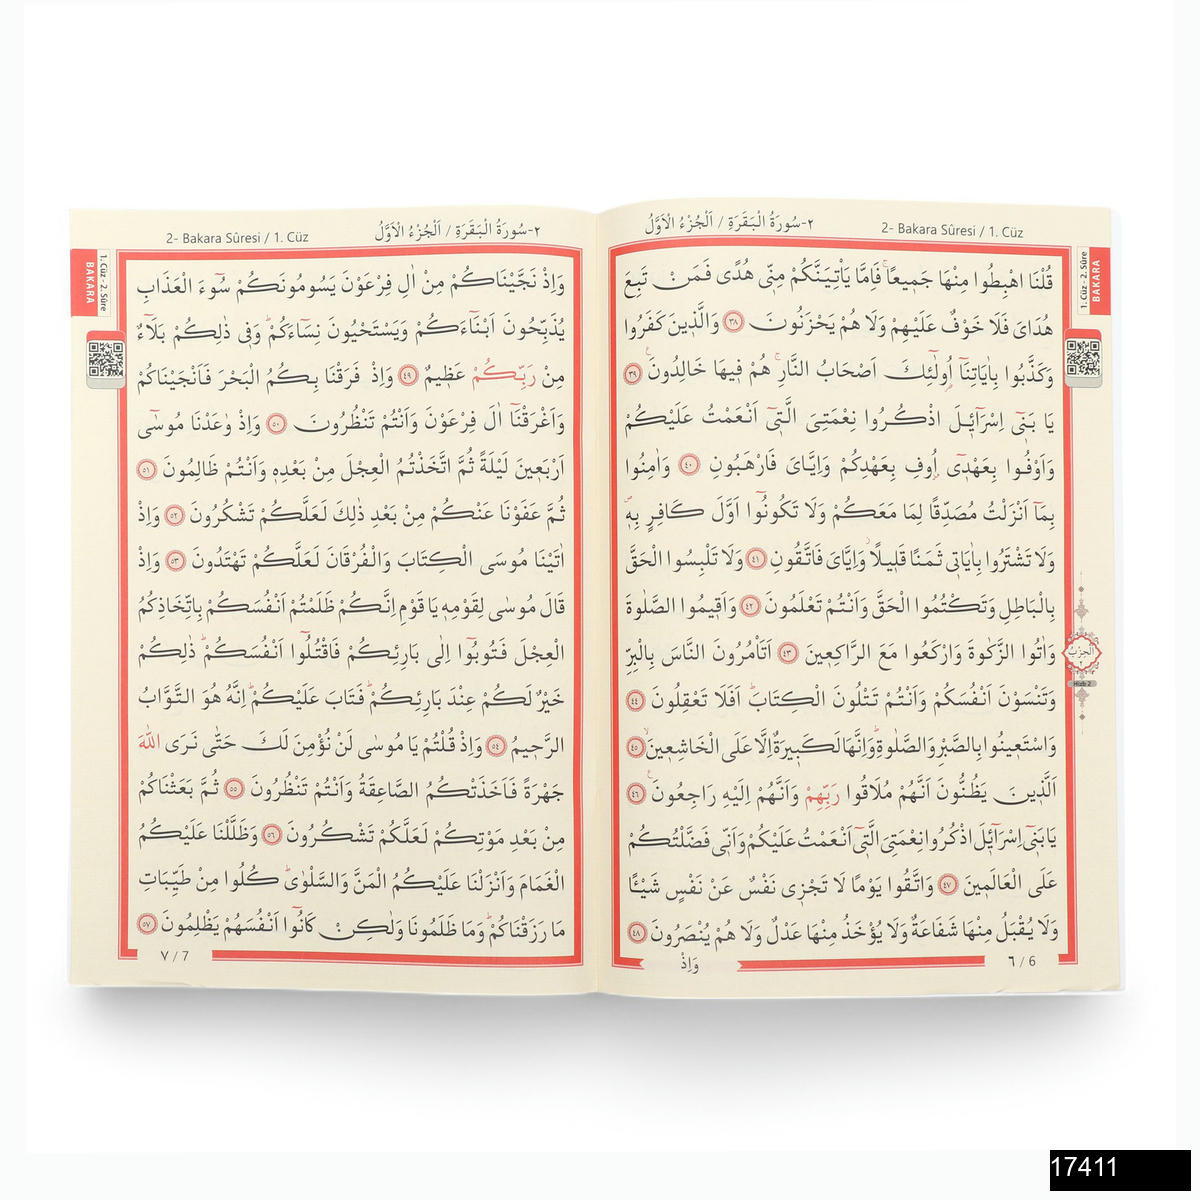 2- Bakara Sûresi / 1. Cüz
٢-سُورَةُ الْبَقَرَةِ / اَلْجُزْءُ الْاَوَّلُ
1. Cüz - 2. Sûre
BAKARA
قُلْنَا اهْبِطُوا مِنْهَا جَمٖيعًاۚ فَاِمَّا يَاْتِيَنَّكُمْ مِنّٖى هُدًى فَمَنْ تَبِعَ
هُدَاىَ فَلَا خَوْفٌ عَلَيْهِمْ وَلَا هُمْ يَحْزَنُونَ ﴿٣٨﴾ وَالَّذٖينَ كَفَرُوا
وَكَذَّبُوا بِاٰيَاتِنَٓا اُو۬لٰٓئِكَ اَصْحَابُ النَّارِۚ هُمْ فٖيهَا خَالِدُونَۚ ﴿٣٩﴾
يَا بَنٖٓى اِسْرَٓائٖلَ اذْكُرُوا نِعْمَتِىَ الَّتٖٓى اَنْعَمْتُ عَلَيْكُمْ
وَاَوْفُوا بِعَهْدٖٓى اُو۫فِ بِعَهْدِكُمْ وَاِيَّاىَ فَارْهَبُونِ ﴿٤٠﴾ وَاٰمِنُوا
بِمَٓا اَنْزَلْتُ مُصَدِّقًا لِمَا مَعَكُمْ وَلَا تَكُونُٓوا اَوَّلَ كَافِرٍ بِهٖۖ
وَلَا تَشْتَرُوا بِاٰيَاتٖى ثَمَنًا قَلٖيلًاؗ وَاِيَّاىَ فَاتَّقُونِ ﴿٤١﴾ وَلَا تَلْبِسُوا الْحَقَّ
بِالْبَاطِلِ وَتَكْتُمُوا الْحَقَّ وَاَنْتُمْ تَعْلَمُونَ ﴿٤٢﴾ وَاَقٖيمُوا الصَّلٰوةَ
وَاٰتُوا الزَّكٰوةَ وَارْكَعُوا مَعَ الرَّاكِعٖينَ ﴿٤٣﴾ اَتَاْمُرُونَ النَّاسَ بِالْبِرِّ
وَتَنْسَوْنَ اَنْفُسَكُمْ وَاَنْتُمْ تَتْلُونَ الْكِتَابَۜ اَفَلَا تَعْقِلُونَ ﴿٤٤﴾
وَاسْتَعٖينُوا بِالصَّبْرِ وَالصَّلٰوةِۜ وَاِنَّهَا لَكَبٖيرَةٌ اِلَّا عَلَى الْخَاشِعٖينَۙ ﴿٤٥﴾
اَلَّذٖينَ يَظُنُّونَ اَنَّهُمْ مُلَاقُوا رَبِّهِمْ وَاَنَّهُمْ اِلَيْهِ رَاجِعُونَۚ ﴿٤٦﴾
يَا بَنٖٓى اِسْرَٓائٖلَ اذْكُرُوا نِعْمَتِىَ الَّتٖٓى اَنْعَمْتُ عَلَيْكُمْ وَاَنّٖى فَضَّلْتُكُمْ
عَلَى الْعَالَمٖينَ ﴿٤٧﴾ وَاتَّقُوا يَوْمًا لَا تَجْزٖى نَفْسٌ عَنْ نَفْسٍ شَيْـًٔا
وَلَا يُقْبَلُ مِنْهَا شَفَاعَةٌ وَلَا يُؤْخَذُ مِنْهَا عَدْلٌ وَلَا هُمْ يُنْصَرُونَ ﴿٤٨﴾
اَلْحِزْبُ
٢
Hizb 2
٦ / 6
وَاِذْ
2- Bakara Sûresi / 1. Cüz
٢-سُورَةُ الْبَقَرَةِ / اَلْجُزْءُ الْاَوَّلُ
1. Cüz - 2. Sûre
BAKARA
وَاِذْ نَجَّيْنَاكُمْ مِنْ اٰلِ فِرْعَوْنَ يَسُومُونَكُمْ سُٓوءَ الْعَذَابِ
يُذَبِّحُونَ اَبْنَٓاءَكُمْ وَيَسْتَحْيُونَ نِسَٓاءَكُمْۜ وَفٖى ذٰلِكُمْ بَلَٓاءٌ
مِنْ رَبِّكُمْ عَظٖيمٌ ﴿٤٩﴾ وَاِذْ فَرَقْنَا بِكُمُ الْبَحْرَ فَاَنْجَيْنَاكُمْ
وَاَغْرَقْنَٓا اٰلَ فِرْعَوْنَ وَاَنْتُمْ تَنْظُرُونَ ﴿٥٠﴾ وَاِذْ وٰعَدْنَا مُوسٰٓى
اَرْبَعٖينَ لَيْلَةً ثُمَّ اتَّخَذْتُمُ الْعِجْلَ مِنْ بَعْدِهٖ وَاَنْتُمْ ظَالِمُونَ ﴿٥١﴾
ثُمَّ عَفَوْنَا عَنْكُمْ مِنْ بَعْدِ ذٰلِكَ لَعَلَّكُمْ تَشْكُرُونَ ﴿٥٢﴾ وَاِذْ
اٰتَيْنَا مُوسَى الْكِتَابَ وَالْفُرْقَانَ لَعَلَّكُمْ تَهْتَدُونَ ﴿٥٣﴾ وَاِذْ
قَالَ مُوسٰى لِقَوْمِهٖ يَا قَوْمِ اِنَّكُمْ ظَلَمْتُمْ اَنْفُسَكُمْ بِاتِّخَاذِكُمُ
الْعِجْلَ فَتُوبُٓوا اِلٰى بَارِئِكُمْ فَاقْتُلُٓوا اَنْفُسَكُمْۜ ذٰلِكُمْ
خَيْرٌ لَكُمْ عِنْدَ بَارِئِكُمْۜ فَتَابَ عَلَيْكُمْۜ اِنَّهُ هُوَ التَّوَّابُ
الرَّحٖيمُ ﴿٥٤﴾ وَاِذْ قُلْتُمْ يَا مُوسٰى لَنْ نُؤْمِنَ لَكَ حَتّٰى نَرَى اللّٰهَ
جَهْرَةً فَاَخَذَتْكُمُ الصَّاعِقَةُ وَاَنْتُمْ تَنْظُرُونَ ﴿٥٥﴾ ثُمَّ بَعَثْنَاكُمْ
مِنْ بَعْدِ مَوْتِكُمْ لَعَلَّكُمْ تَشْكُرُونَ ﴿٥٦﴾ وَظَلَّلْنَا عَلَيْكُمُ
الْغَمَامَ وَاَنْزَلْنَا عَلَيْكُمُ الْمَنَّ وَالسَّلْوٰىۜ كُلُوا مِنْ طَيِّبَاتِ
مَا رَزَقْنَاكُمْۜ وَمَا ظَلَمُونَا وَلٰكِنْ كَانُٓوا اَنْفُسَهُمْ يَظْلِمُونَ ﴿٥٧﴾
٧ / 7
17411